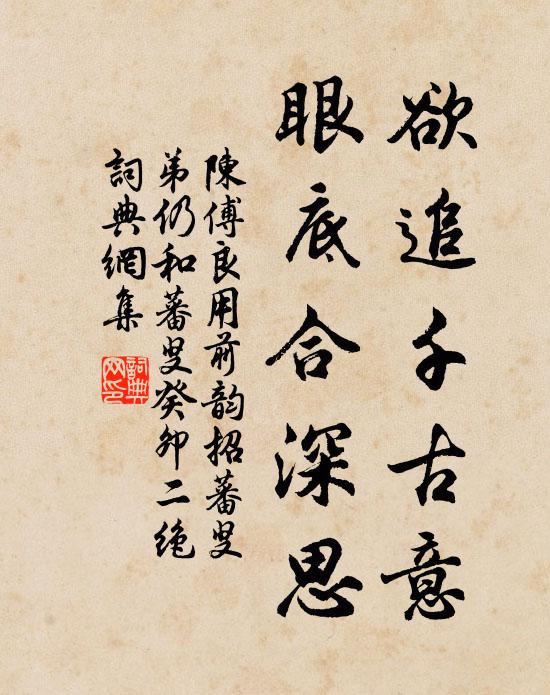 欲追千古意
眼底合深思
陳傅良用前韵招蕃叟
弟仍和蕃叟癸卯二絶
詞典網集
詞典
网印